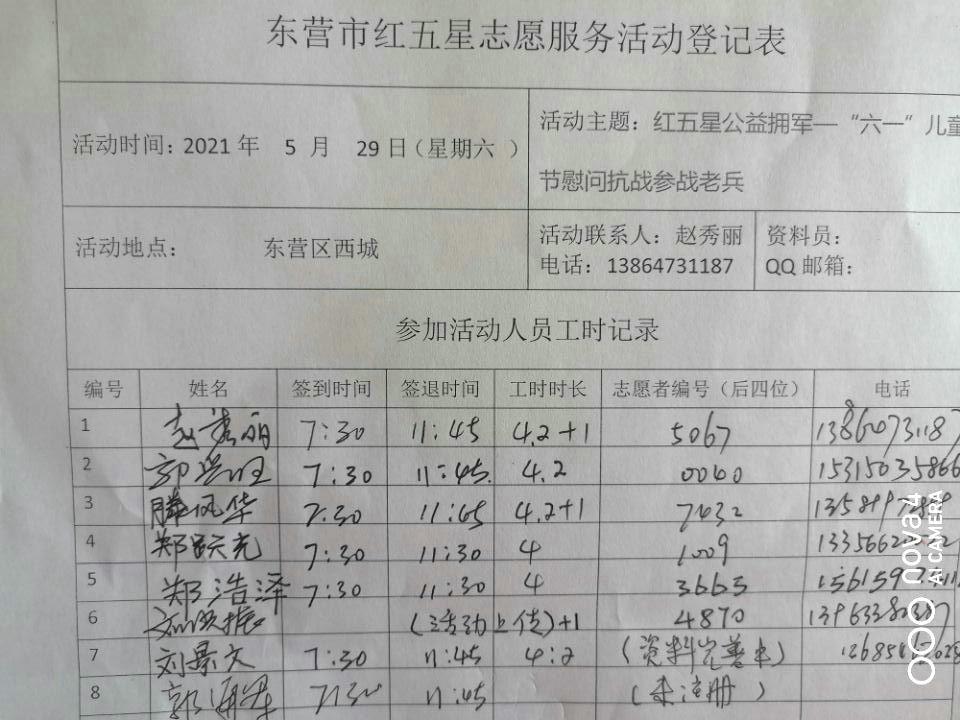 东营市红五星志愿服务活动登记表
活动时间：2021 年 5 月 29 日（星期六 ）
活动主题：红五星公益拥军—“六一”儿童
节慰问抗战参战老兵
活动地点： 东营区西城
活动联系人：赵秀丽
电话：13864731187
资料员：
QQ 邮箱：
参加活动人员工时记录
编号 姓名 签到时间 签退时间 工时时长 志愿者编号（后四位） 电话
1 赵秀丽 7:30 11:45 4.2+1 5067
2 郭兴旺 7:30 11:45 4.2 0040 15315035866
3 滕风华 7:30 11:45 4.2+1 7432
4 郑跃亮 7:30 11:30 4 1009
5 郑浩泽 7:30 11:30 4 3665
6 (活动上传)+1 4870
7 刘景文 7:30 11:45 4:2 (资料完善中)
8 郭海军 7:30 11:45 (未注册)
nova 4
AI CAMERA